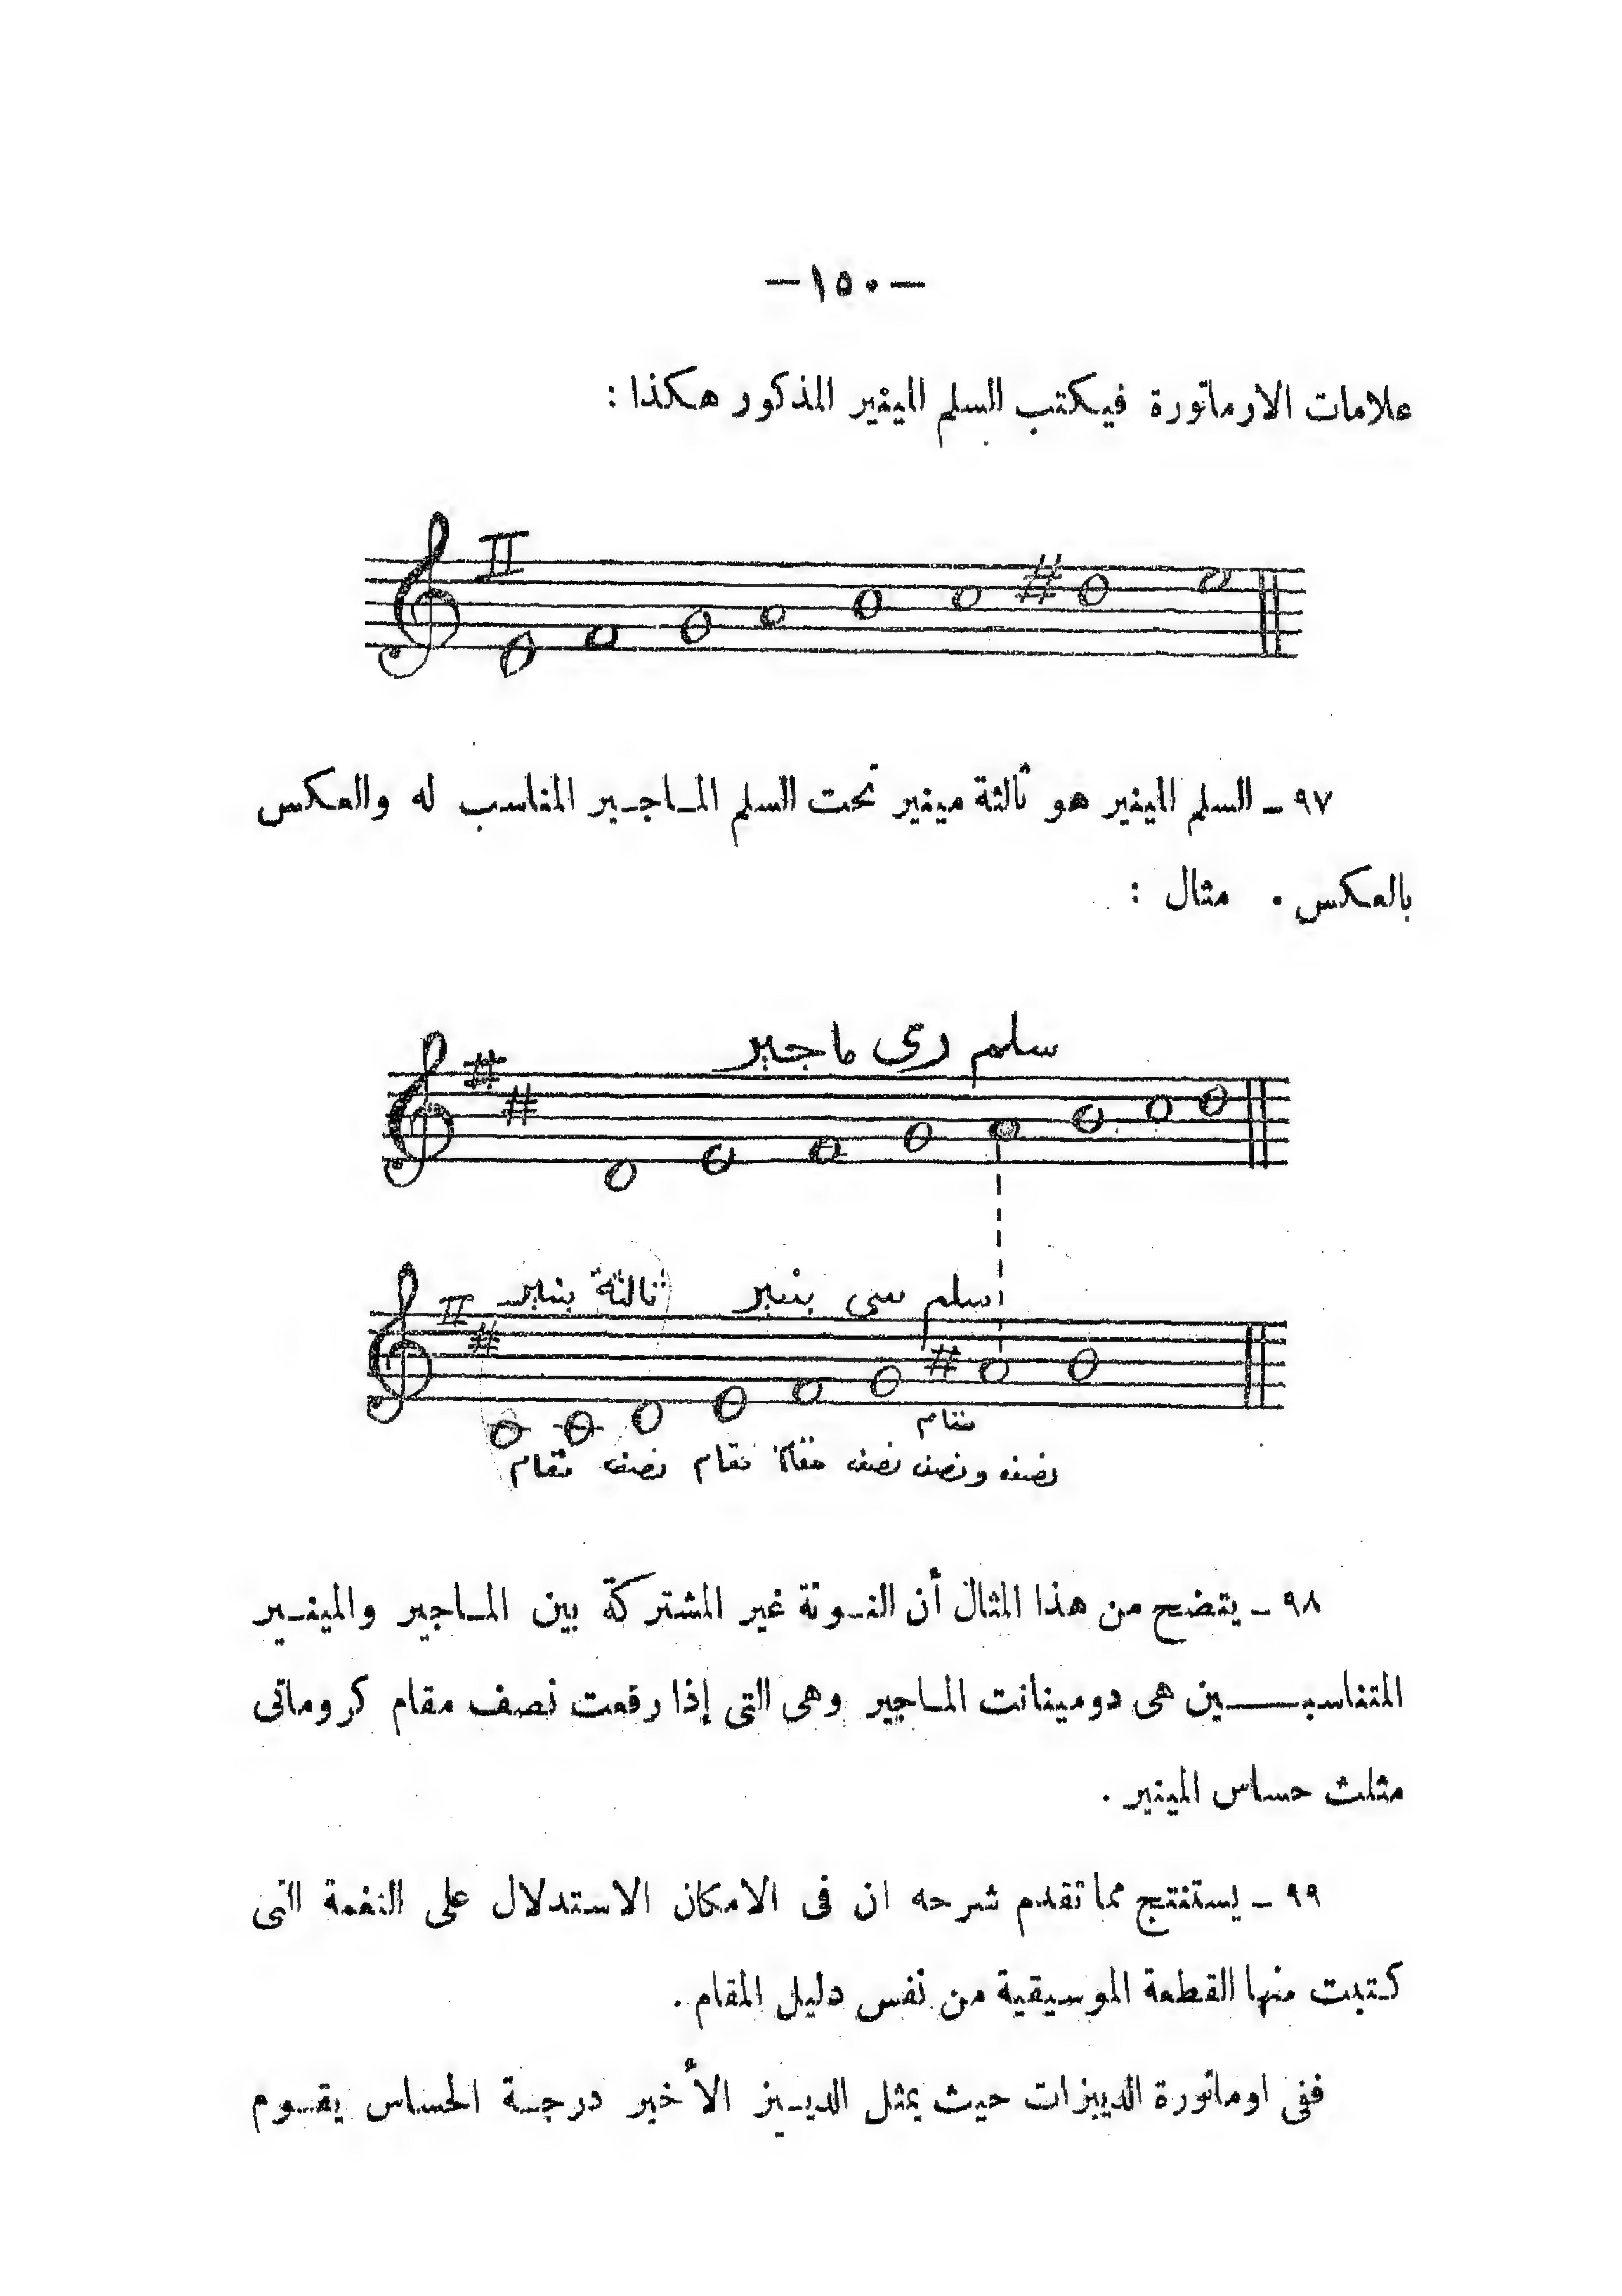 —١٥٠—
علامات الارماتورة فيكتب السلم المينير المذكور هكذا :
II
٩٧ ـ السلم المينير هو ثالثة مينير تحت السلم المـاجـير المناسب له والعكس
بالعكس . مثال :
سلم رى ماجير
سلم سى بنير ثالثة بنير
II
مقام
مقام نصف مقام مقام نصف نصف ونصف نصف
٩٨ ـ يتضح من هذا المثال أن النـوتة غير المشتركة بين المـاجير والمينـير
المتناسبـــين هى دومينانت المـاجير وهى التى إذا رفعت نصف مقام كروماتى
مثلث حساس المينير .
٩٩ ـ يستنتج مما تقدم شرحه ان فى الامكان الاستدلال على النغمة التى
كتبت منها القطعة الموسيقية من نفس دليل المقام .
ففى اوماتورة الدييزات حيث يمثل الديـيز الأخير درجـة الحساس يقـوم